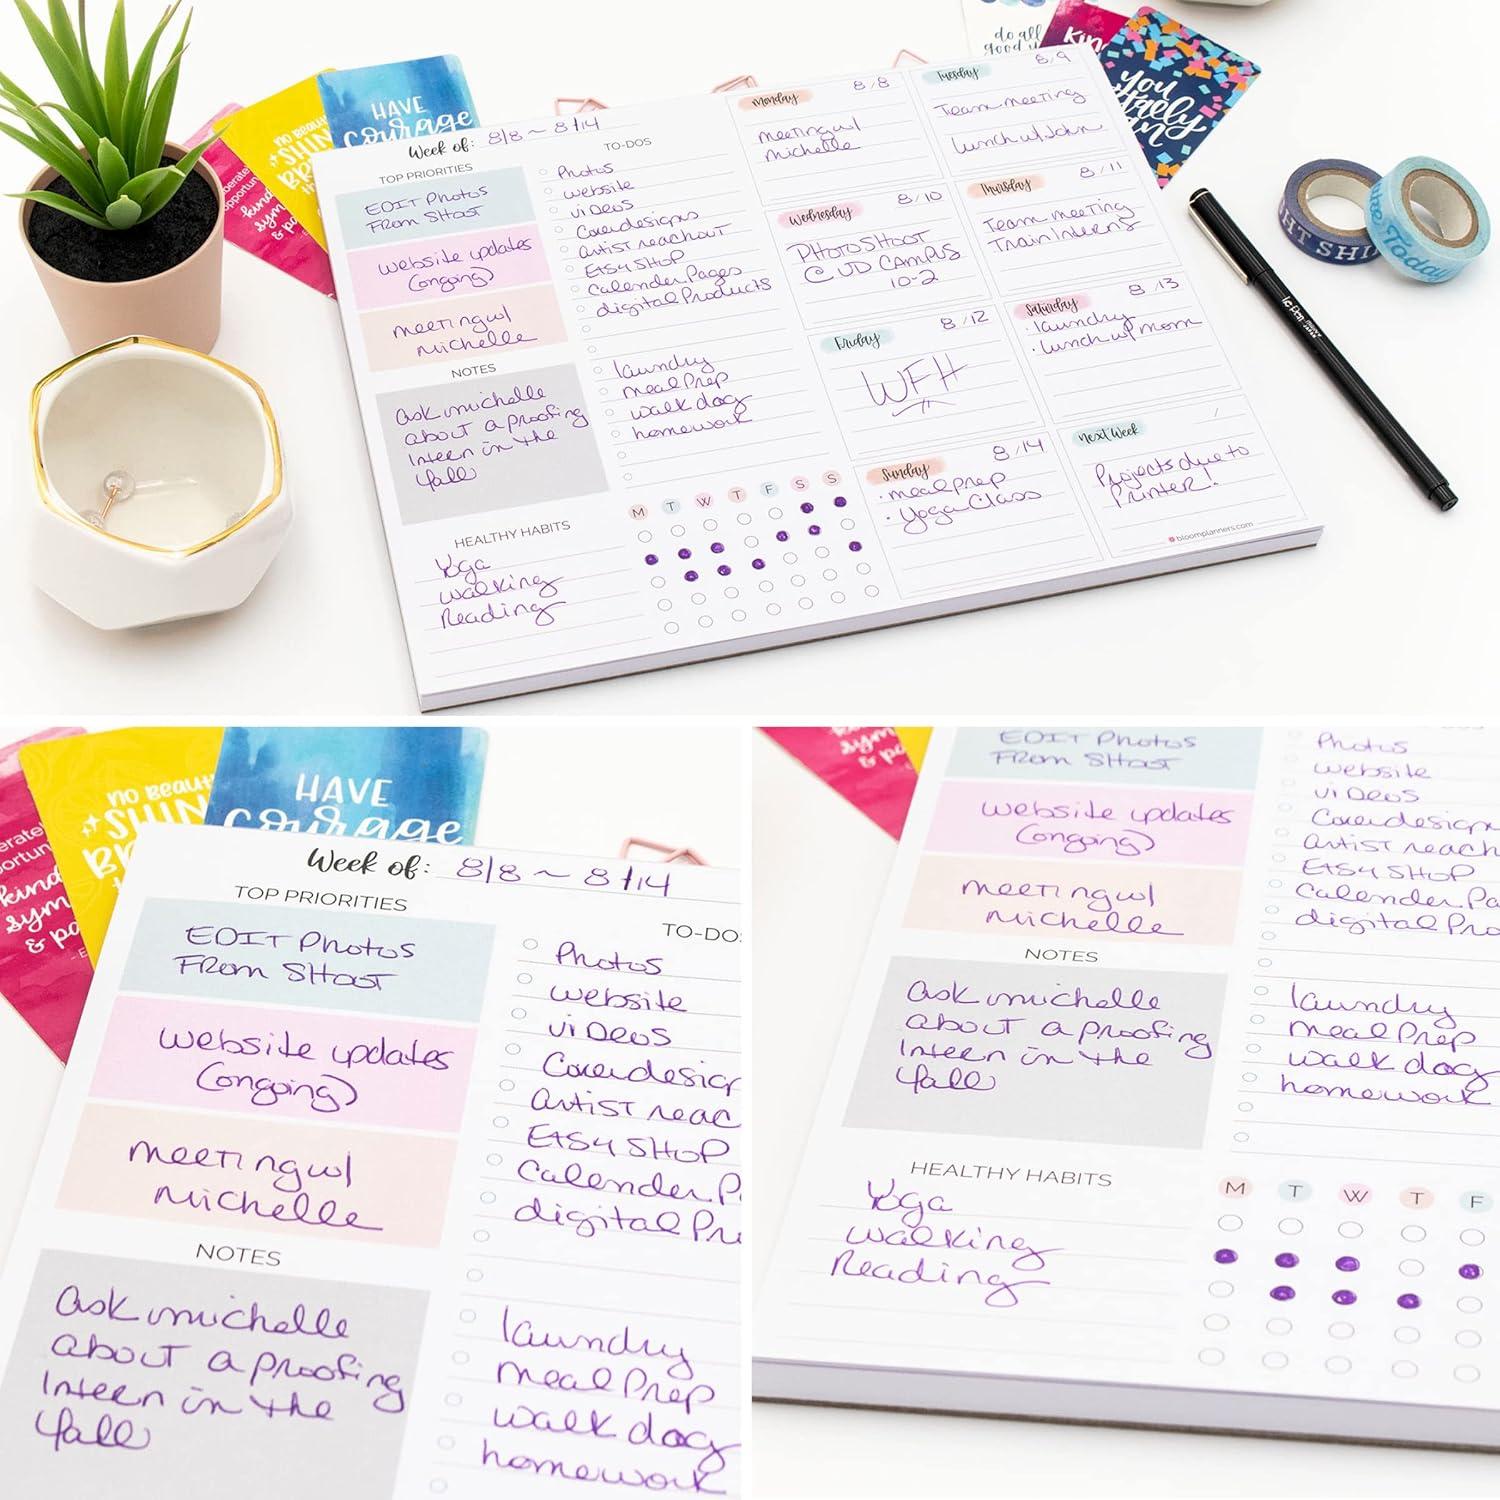 HAVE
Courage
no beau
SHIN
BR
kind
sym
do all
good
kin
You
Week of: 8/8 ~ 8/14
TOP PRIORITIES
EDIT Photos
From SHoot
website updates
(ongoing)
meeting w/
michelle
NOTES
ask michelle
about a proofing
Intern in the
fall
HEALTHY HABITS
Yoga
walking
Reading
TO-DOS
Photos
website
videos
Cover designs
artist reachout
Etsy SHOP
Calender Pages
digital Products
laundry
meal Prep
walk dog
homework
M T W T F S S
Monday 8/8
meeting w/
michelle
Tuesday 8/9
Team meeting
Lunch w/ John
Wednesday 8/10
PHOTOSHOOT
@ UD CAMPUS
10-2
Thursday 8/11
Team meeting
Train Interns
Friday 8/12
WFH
Saturday 8/13
· laundry
· lunch w/ mom
Sunday 8/14
· meal prep
· Yoga Class
Next Week /
Projects due to
Printer!
bloomplanners.com
Le Pen
HT SHI
Today
no beauti
SHIN
BR
HAVE
courage
kind
sym
& pa
Week of: 8/8 ~ 8/14
TOP PRIORITIES
EDIT Photos
From SHoot
website updates
(ongoing)
meeting w/
michelle
NOTES
ask michelle
about a proofing
Intern in the
fall
TO-DO
Photos
website
videos
Cover design
artist reac
Etsy SHOP
Calender P
digital Pr
laundry
meal Prep
walk dog
homework
EDIT Photos
From SHoot
website updates
(ongoing)
meeting w/
michelle
NOTES
ask michelle
about a proofing
Intern in the
fall
HEALTHY HABITS
Yoga
walking
Reading
Photos
website
videos
Cover design
artist reach
Etsy SHOP
Calender Pa
digital Pro
laundry
meal Prep
walk dog
homework
M T W T F